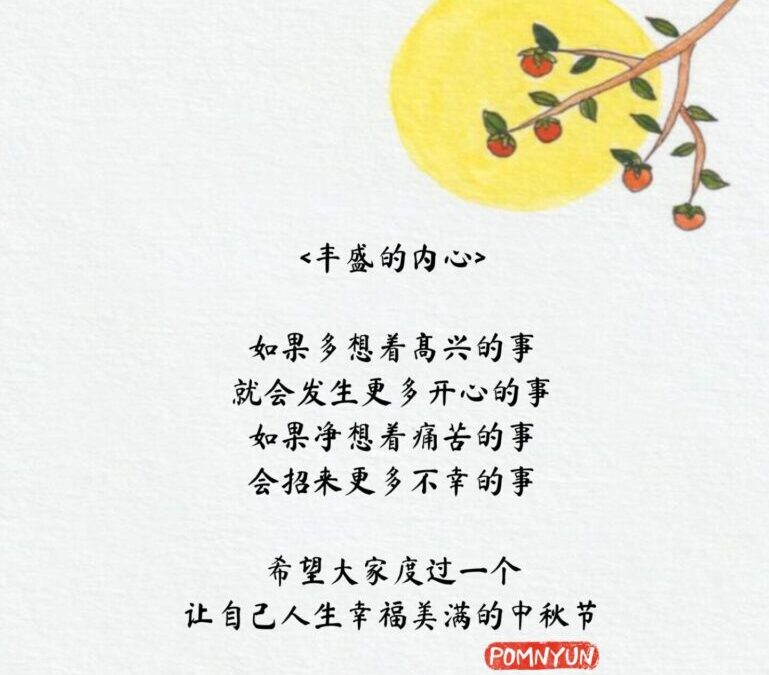 <丰盛的内心>
如果多想着高兴的事
就会发生更多开心的事
如果净想着痛苦的事
会招来更多不幸的事
希望大家度过一个
让自己人生幸福美满的中秋节
POMNYUN